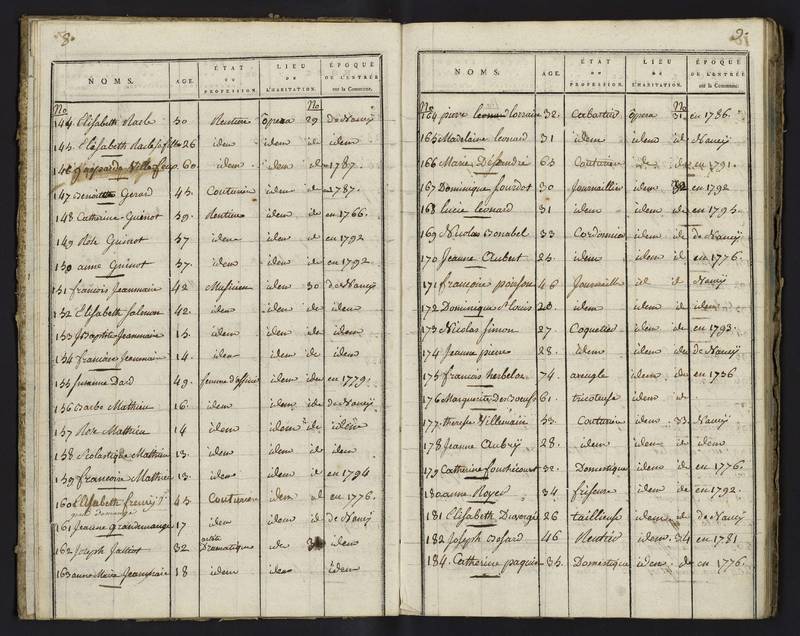 8.
NOMS. AGE. ÉTAT OU PROFESSION. LIEU DE L'HABITATION. ÉPOQUE DE L'ENTRÉE sur la Commune.
No No
144. Elisabeth 50 Rentiere opera 29 de Nancÿ
145. Elisabeth 26 idem idem id idem
146 60. idem idem id 1787.
147 Gerard 45. Couturiere idem id 1787.
148 Catherine Guenot 59. Rentiere idem id en 1766.
149 Rose Guenot 57 idem idem id en 1792
150 anne Guenot 57. idem idem id en 1792.
151 francois Jeanmaire 42 Musicien idem 30 de Nancÿ
152 Elisabeth Salmon 42. idem idem id idem
153 J Baptiste Jeanmaire 15. idem idem id idem
154 francoise Jeanmaire 14. idem idem id idem
155 Suzanne Dard 49. idem id en 1779.
156 Barbe Mathieu 16. idem idem id de Nancÿ
157 Rose Mathieu 14 idem idem id idem
158 Scolastique Mathieu 13. idem idem id idem
159 francoise Mathieu 13. idem idem id en 1794
160 Elisabeth 45 Couturiere idem id en 1776.
161 Jeanne grandemange 17 idem idem id de Nancÿ
162 Joseph 32 artiste Dramatique id 3 idem
163 anne Marie Jeanmaire 18 idem idem idem
NOMS. AGE. ÉTAT OU PROFESSION. LIEU DE L'HABITATION. ÉPOQUE DE L'ENTRÉE sur la Commune.
No No
164 pierre lorraine 32. Cabartier opera 31 en 1786.
165 Madelaine leonard 31 idem idem id Nancÿ
166 Marie 63 Couturiere id id en 1791.
167 Dominique fourdot 30 Journaillier idem 32 en 1792
168 lucie leonard 31 idem idem id en 1795
169 Nicolas Bonabel 33 Cordonnier idem id de Nancÿ
170 Jeanne Aubert 25. idem idem id en 1776.
171 francoise poirson 46 Journaillier id id Nancÿ
172 Dominique St. louis 20. idem idem id idem
173 Nicolas Simon 27 Coquetier idem id en 1793.
174 Jeanne pierre 28. idem idem id de Nancÿ
175 francois herbelor 74. aveugle idem id en 1736
176 Marguerite 61. tricoteuse idem id
177. therese Villemain 53. Couturiere idem 33. Nancÿ
178 Jeanne Aubrÿ 28. idem idem id idem
179 Catherine fouchécourt 32. Domestique idem id en 1776.
180 anne Royer 34. friseuse idem id en 1792.
181 Elisabeth 26 tailleuse idem id de Nancÿ
182 Joseph 46 Rentier idem 34 en 1781
184. Catherine paquier 35. Domestique idem id en 1776.